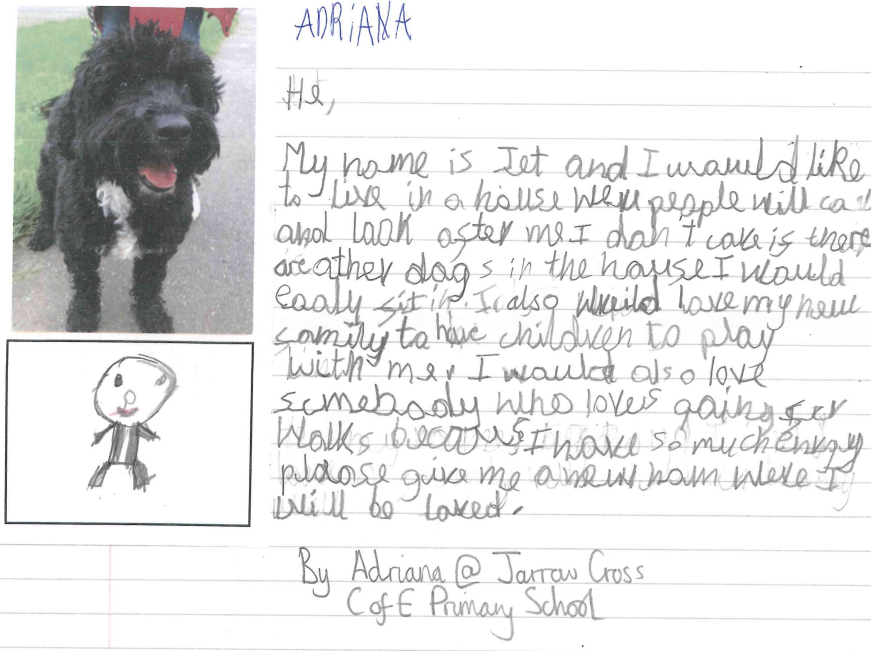 ADRiANA
Hi,
My name is Jet and I would like
to live in a house were people will
and look after me I don't care if there
are other dogs in the house I would
easly fit in. I also would love my new
family to have children to play
with me. I would also love
somebody who loves going for
Walks because I have so much enrgy
please give me a new hom were I
will be loved.
By Adriana @ Jarrow Cross
C of E Primary School